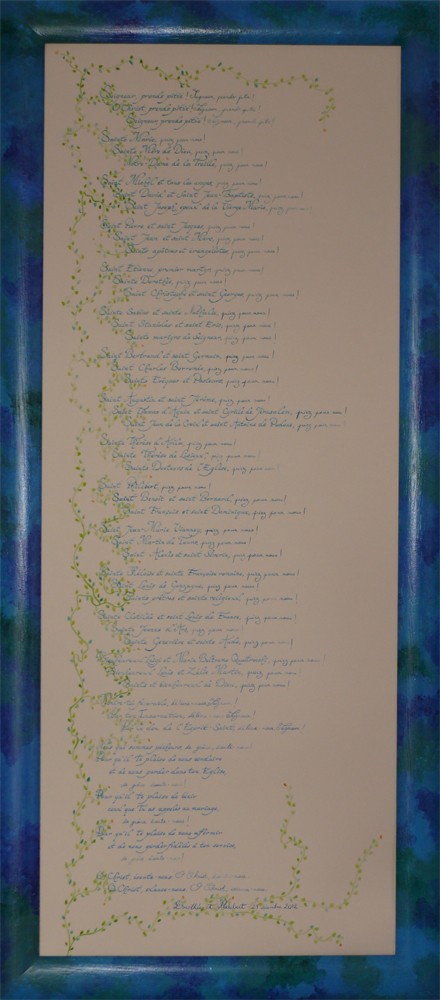 Seigneur, prends pitié ! Seigneur, prends pitié !
Ô Christ, prends pitié !
Seigneur prends pitié !
Sainte Marie, priez pour nous !
Sainte Mère de Dieu, priez pour nous !
Notre-Dame de la Treille, priez pour nous !
Saint Michel et tous les anges, priez pour nous !
Saint et Saint Jean-Baptiste, priez pour nous !
Saint Joseph, époux de la Vierge Marie, priez pour nous !
Saint Pierre et saint Jacques, priez pour nous !
Saint Jean et saint Marc, priez pour nous !
Saints apôtres et évangélistes, priez pour nous !
Saint Etienne, premier martyr, priez pour nous !
Sainte Dorothée, priez pour nous !
Saint Christophe et saint Georges, priez pour nous !
et sainte Nathalie, priez pour nous !
Saint Stanislas et saint priez pour nous !
Saints martyrs du Seigneur, priez pour nous !
Saint Bertrand et saint Germain, priez pour nous !
Saint Charles Borromée, priez pour nous !
Saints Evêques et Pasteurs, priez pour nous !
Saint Augustin et saint Jérôme, priez pour nous !
Saint Thomas d'Aquin et saint Cyrille de Jérusalem, priez pour nous !
Saint Jean de la Croix et saint Antoine de Padoue, priez pour nous !
Sainte Thérèse d'Avila, priez pour nous !
Sainte Thérèse de Lisieux, priez pour nous !
Saints Docteurs de l'Eglise, priez pour nous !
Saint priez pour nous !
Saint Benoît et saint Bernard, priez pour nous !
Saint François et saint Dominique, priez pour nous !
Saint Jean-Marie Vianney, priez pour nous !
Saint Martin de Tours, priez pour nous !
Saint et saint priez pour nous !
Sainte et sainte Françoise-romaine, priez pour nous !
Saint Louis de Gonzague, priez pour nous !
Saints et saints religieux, priez pour nous !
Sainte Clotilde et saint Louis de France, priez pour nous !
Sainte Jeanne d'Arc, priez pour nous !
Sainte et sainte priez pour nous !
Bienheureux Luigi et Maria Beltrame Quattrocchi, priez pour nous !
Bienheureux Louis et Zélie Martin, priez pour nous !
Saints et bienheureux de Dieu, priez pour nous !
délivre-nous Seigneur !
Par ton Incarnation, délivre-nous Seigneur !
Par le don de l'Esprit-Saint, délivre-nous Seigneur !
Nous qui sommes pécheurs, de grâce, écoute-nous !
Pour qu'il te plaise de nous conduire
et de nous garder dans ton Eglise,
de grâce écoute-nous !
Pour qu'il te plaise de bénir
ceux que tu as appelés au mariage,
de grâce écoute-nous !
Pour qu'il te plaise de nous affermir
et de nous garder fidèles à ton service,
de grâce écoute-nous !
Ô Christ, écoute-nous, Ô Christ, écoute-nous
Ô Christ, exauce-nous, Ô Christ, exauce-nous